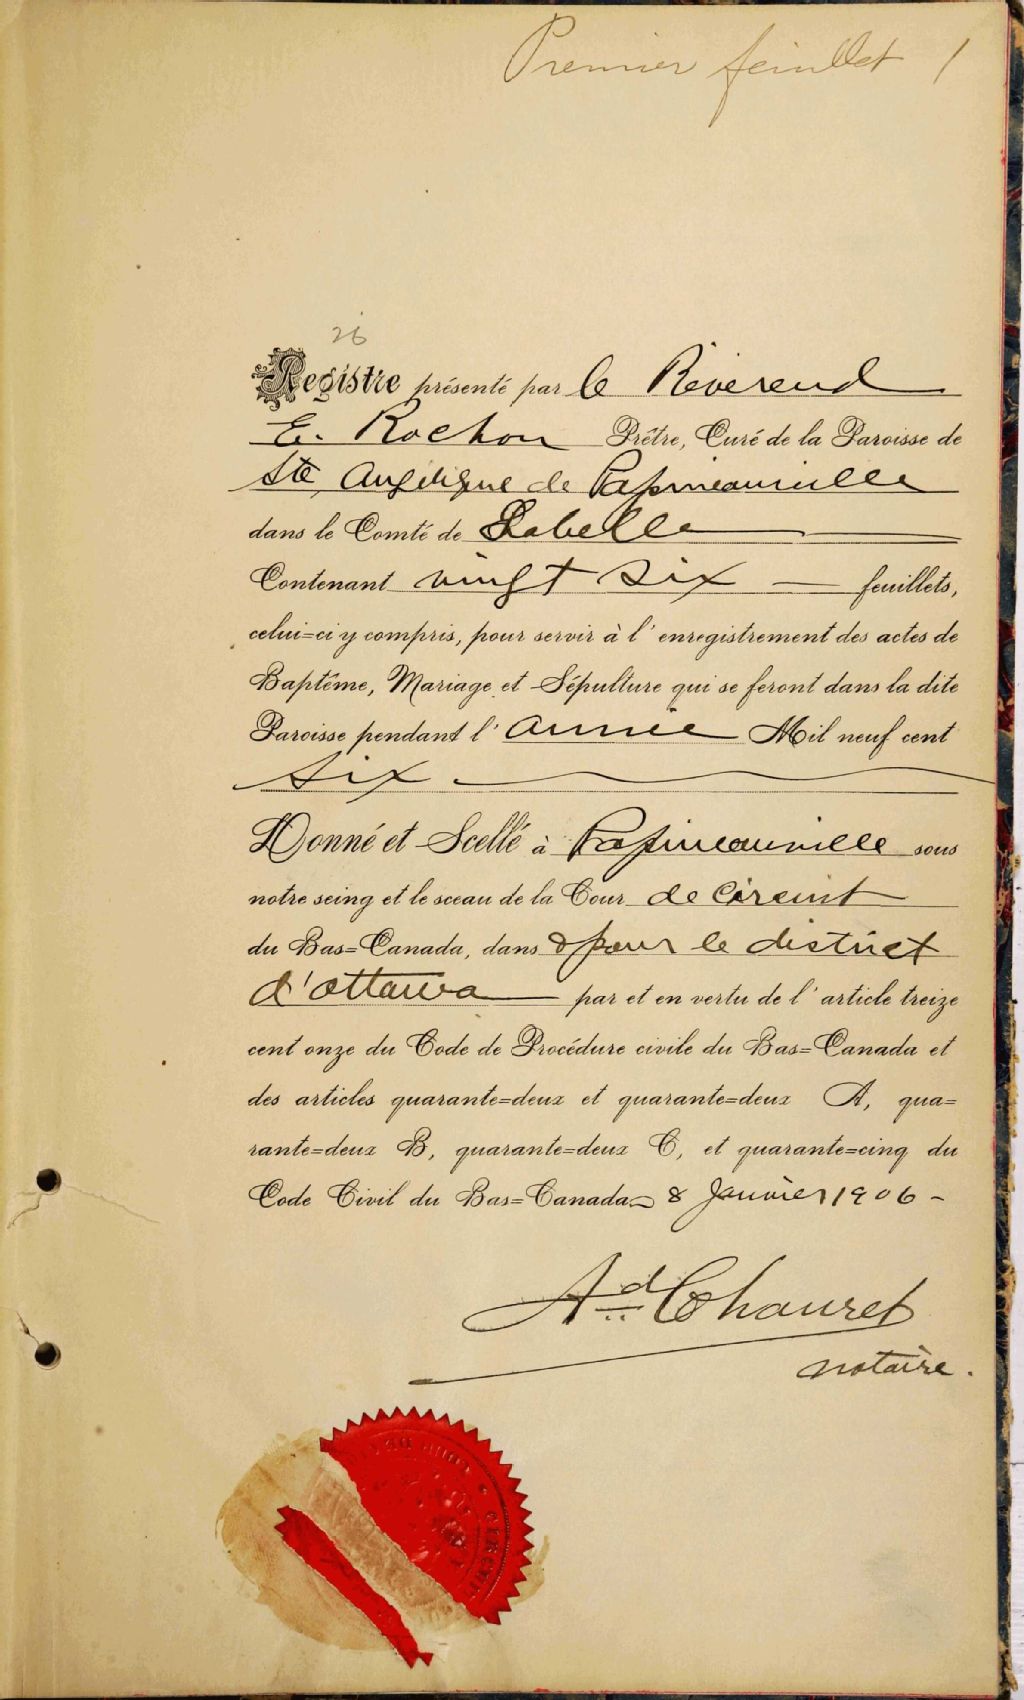 Premier feuillet 1
26
Registre présenté par le Révérend
E. Rochon Prêtre, Curé de la Paroisse de
Ste Angélique de Papineauville
dans le Comté de Labelle
Contenant vingt six feuillets,
celui=ci y compris, pour servir à l'enregistrement des actes de
Baptême, Mariage et Sépulture qui se feront dans la dite
Paroisse pendant l'année Mil neuf cent
six
Donné et Scellé à Papineauville sous
notre seing et le sceau de la Cour de Circuit
du Bas=Canada, dans & pour le district
d'Ottawa par et en vertu de l'article treize
cent onze du Code de Procédure civile du Bas=Canada et
des articles quarante=deux et quarante=deux A, qua=
rante=deux B, quarante=deux C, et quarante=cinq du
Code Civil du Bas=Canada 8 Janvier 1906 -
Ad Chauret
notaire.